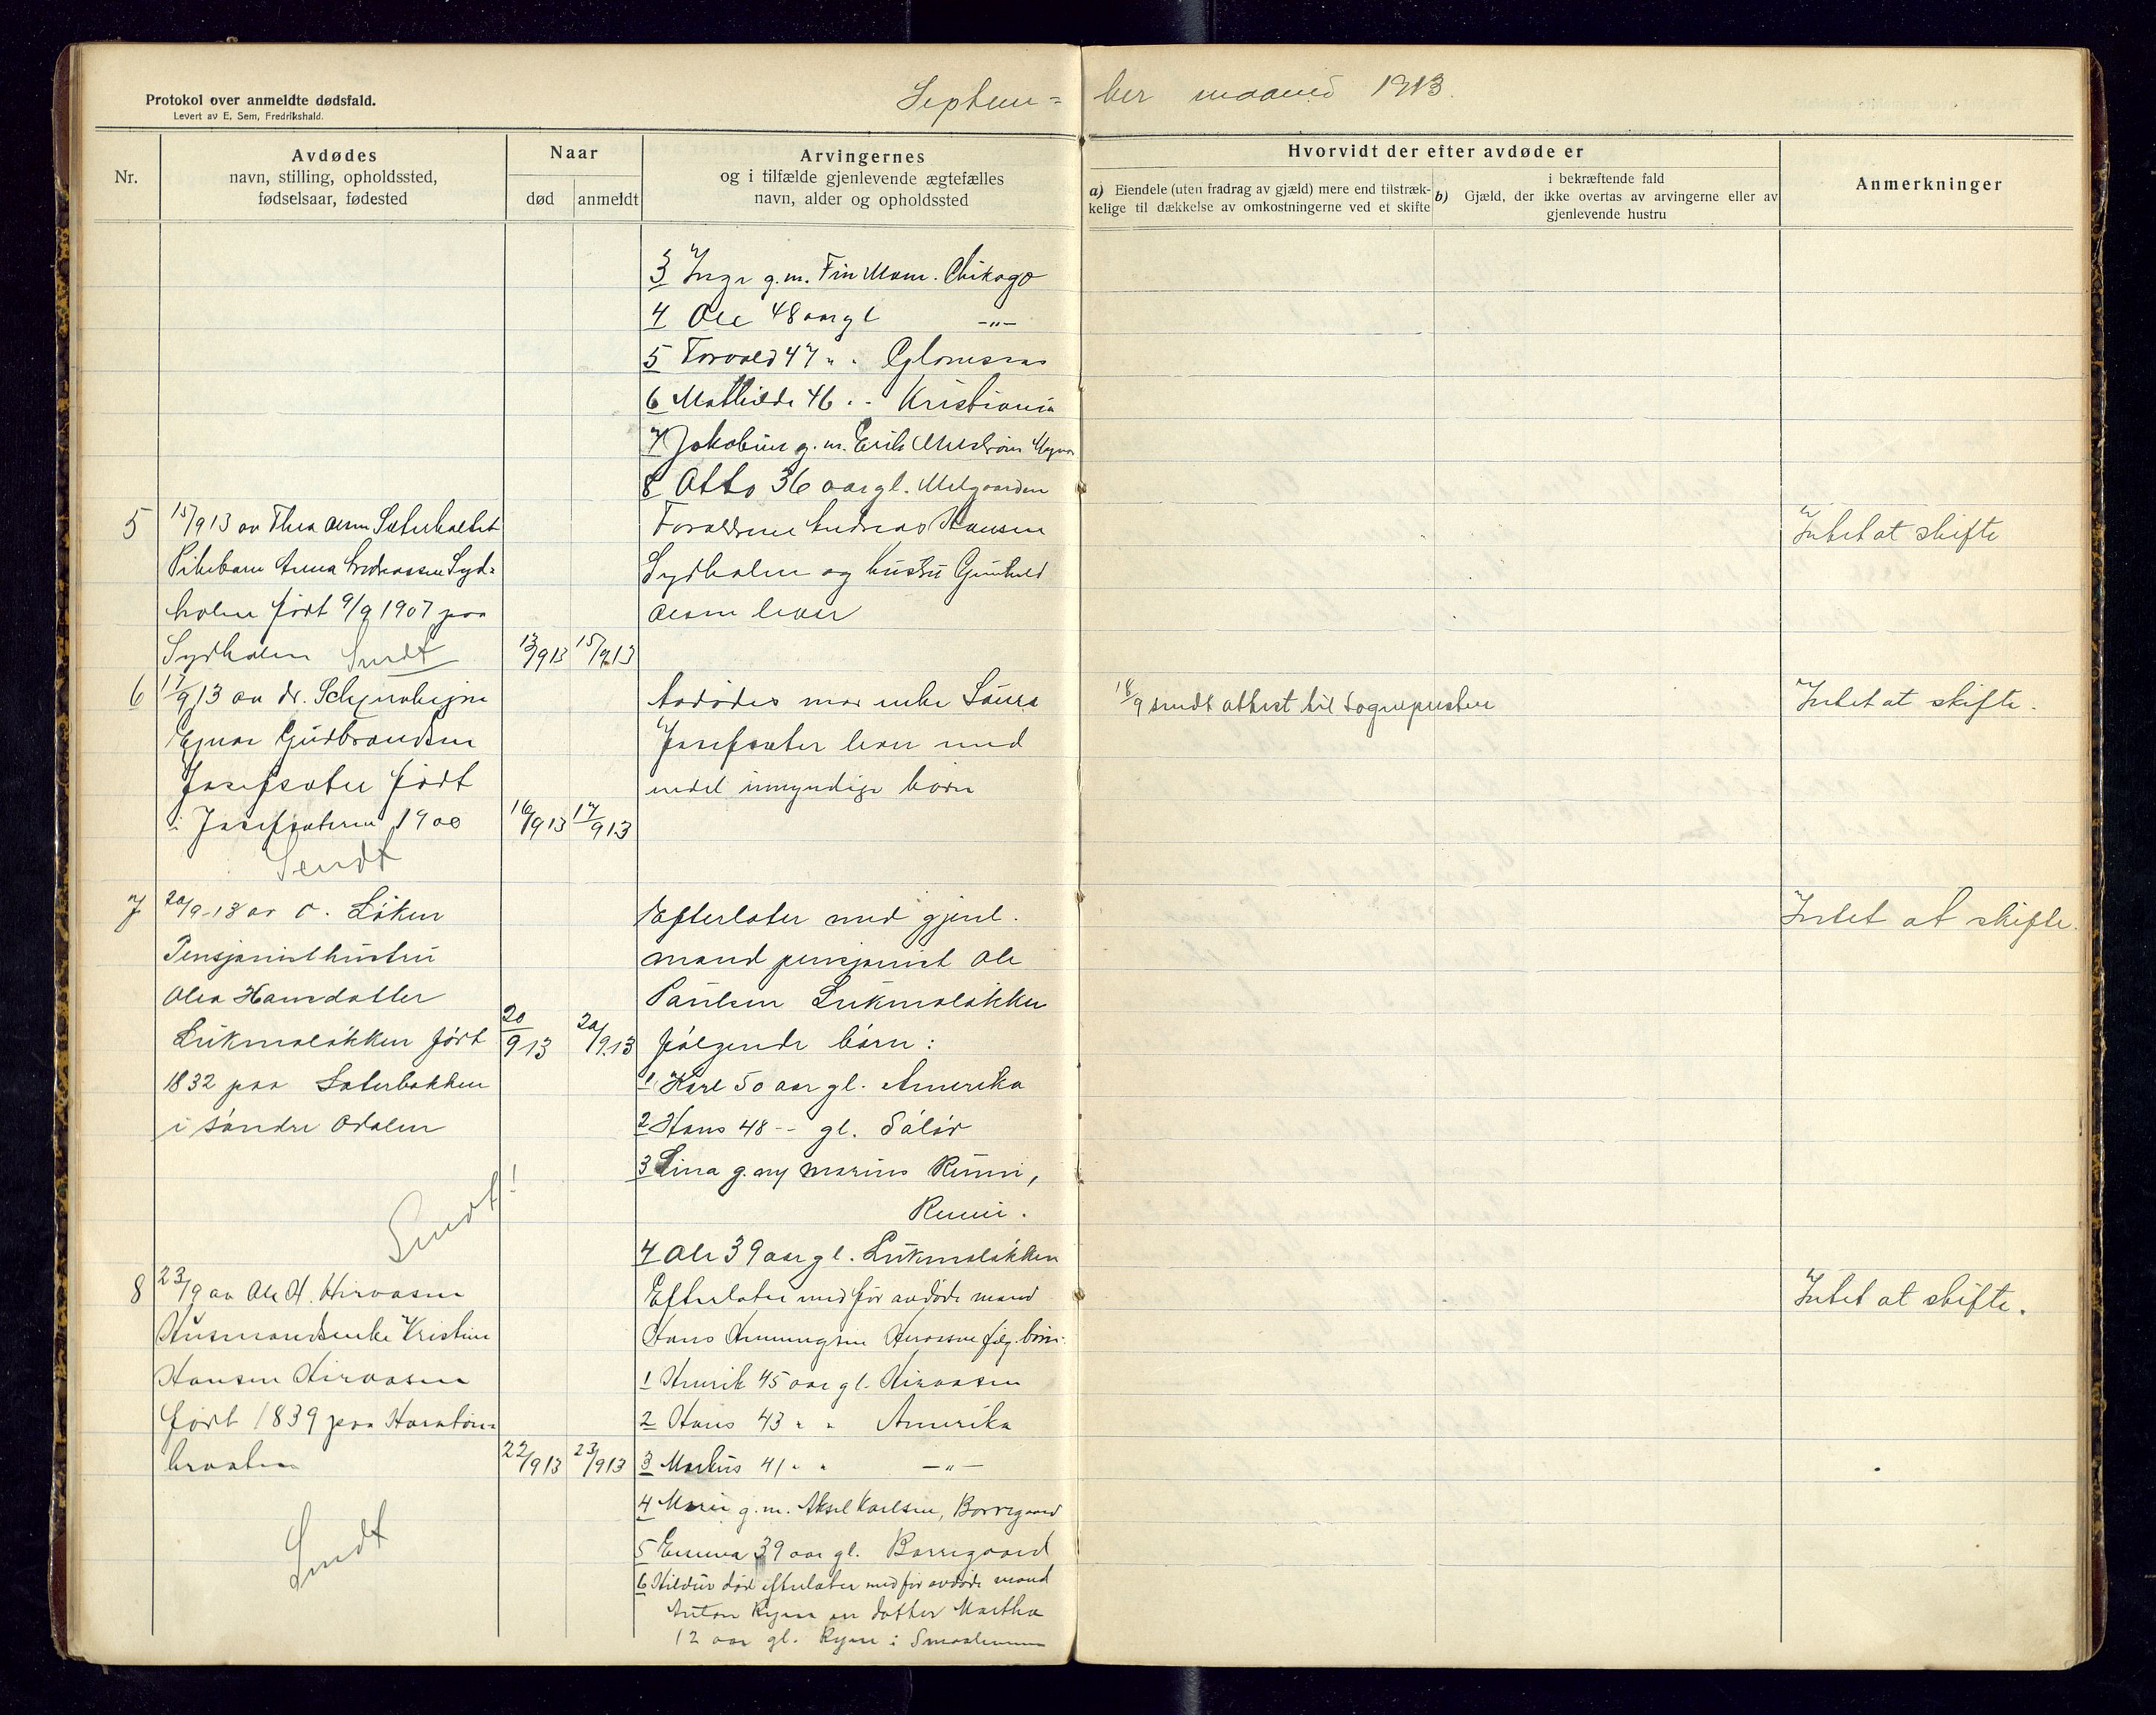 Protokol over anmeldte dødsfald.
Levert av E. Sem, Fredrikshald.
Septem= ber maaned 1913.
Nr.
Avdødes
navn, stilling, opholdssted,
fødselsaar, fødested
Naar
død
anmeldt
Arvingernes
og i tilfælde gjenlevende ægtefælles
navn, alder og opholdssted
Hvorvidt der efter avdøde er
a) Eiendele (uten fradrag av gjæld) mere end tilstræk-
kelige til dækkelse av omkostningerne ved et skifte
i bekræftende fald
b) Gjæld, der ikke overtas av arvingerne eller av
gjenlevende hustru
Anmerkninger
3 Inga g.m. Fin Chikago
4 Ole 48 aar gl -"-
5 Torvald 47 " " Glomsaas
6 Mathilde 46 " " Kristiania
7 Jakobine g.m. Erik
8 Otto 36 aar gl. Melgaarden
5
15/9 13 av Thea Olsen Sæterholtet
Pikebarn Anna Andreassen Syd=
holen født 9/9 1907 paa
Sydholen Sendt
13/9 13
15/9 13
Forældrene Andreas Hansen
Sydholen og hustru Gunhild
Olsen lever
Intet at skifte
6
17/9 13 av dr.
Ejnar Gudbrandsen
Josefsæter født
i Josefsæteren 1900
Sendt
16/9 13
17/9 13
Avdødes mor enke Laura
Josefsæter lever med
endel umyndige børn
18/9 sendt attest til sognepresten
Intet at skifte.
7
20/9-13 av O. Løken
Pensjonisthustru
Olea Hansdatter
Lukmoløkken født
1832 paa Sæterbakken
i søndre Odalen
Sendt!
20/9 13
20/9.13
Efterlater med gjenl.
mand pensjonist Ole
Paulsen Lukmoløkken
følgende børn:
1 Karl 50 aar gl. Amerika
2 Hans 48 -- gl. Solør
3 Lina g. m Marius Runni,
Runni.
4 Ole 39 aar gl. Lukmoløkken
Intet at skifte.
8
23/9 av Ole H. Hiraasen
Husmandsenke Kristine
Hansen Hiraasen
født 1839 paa
braaten
Sendt
22/9 13
23/9 13
Efterlater med før avdøde mand
Hans Henningsen Hiraasen følg. børn:
1 Henrik 45 aar gl. Hiraasen
2 Hans 43 " " Amerika
3 Markus 41 " " -"-
4 Marie g.m. Aksel Karlsen, Borregaard
5 Emma 39 aar gl. Borregaard
6 Hildur død efterlater med før avdøde mand
Anton Rygge en datter Martha
12 aar gl. Rygge i Smaalenene
Intet at skifte.